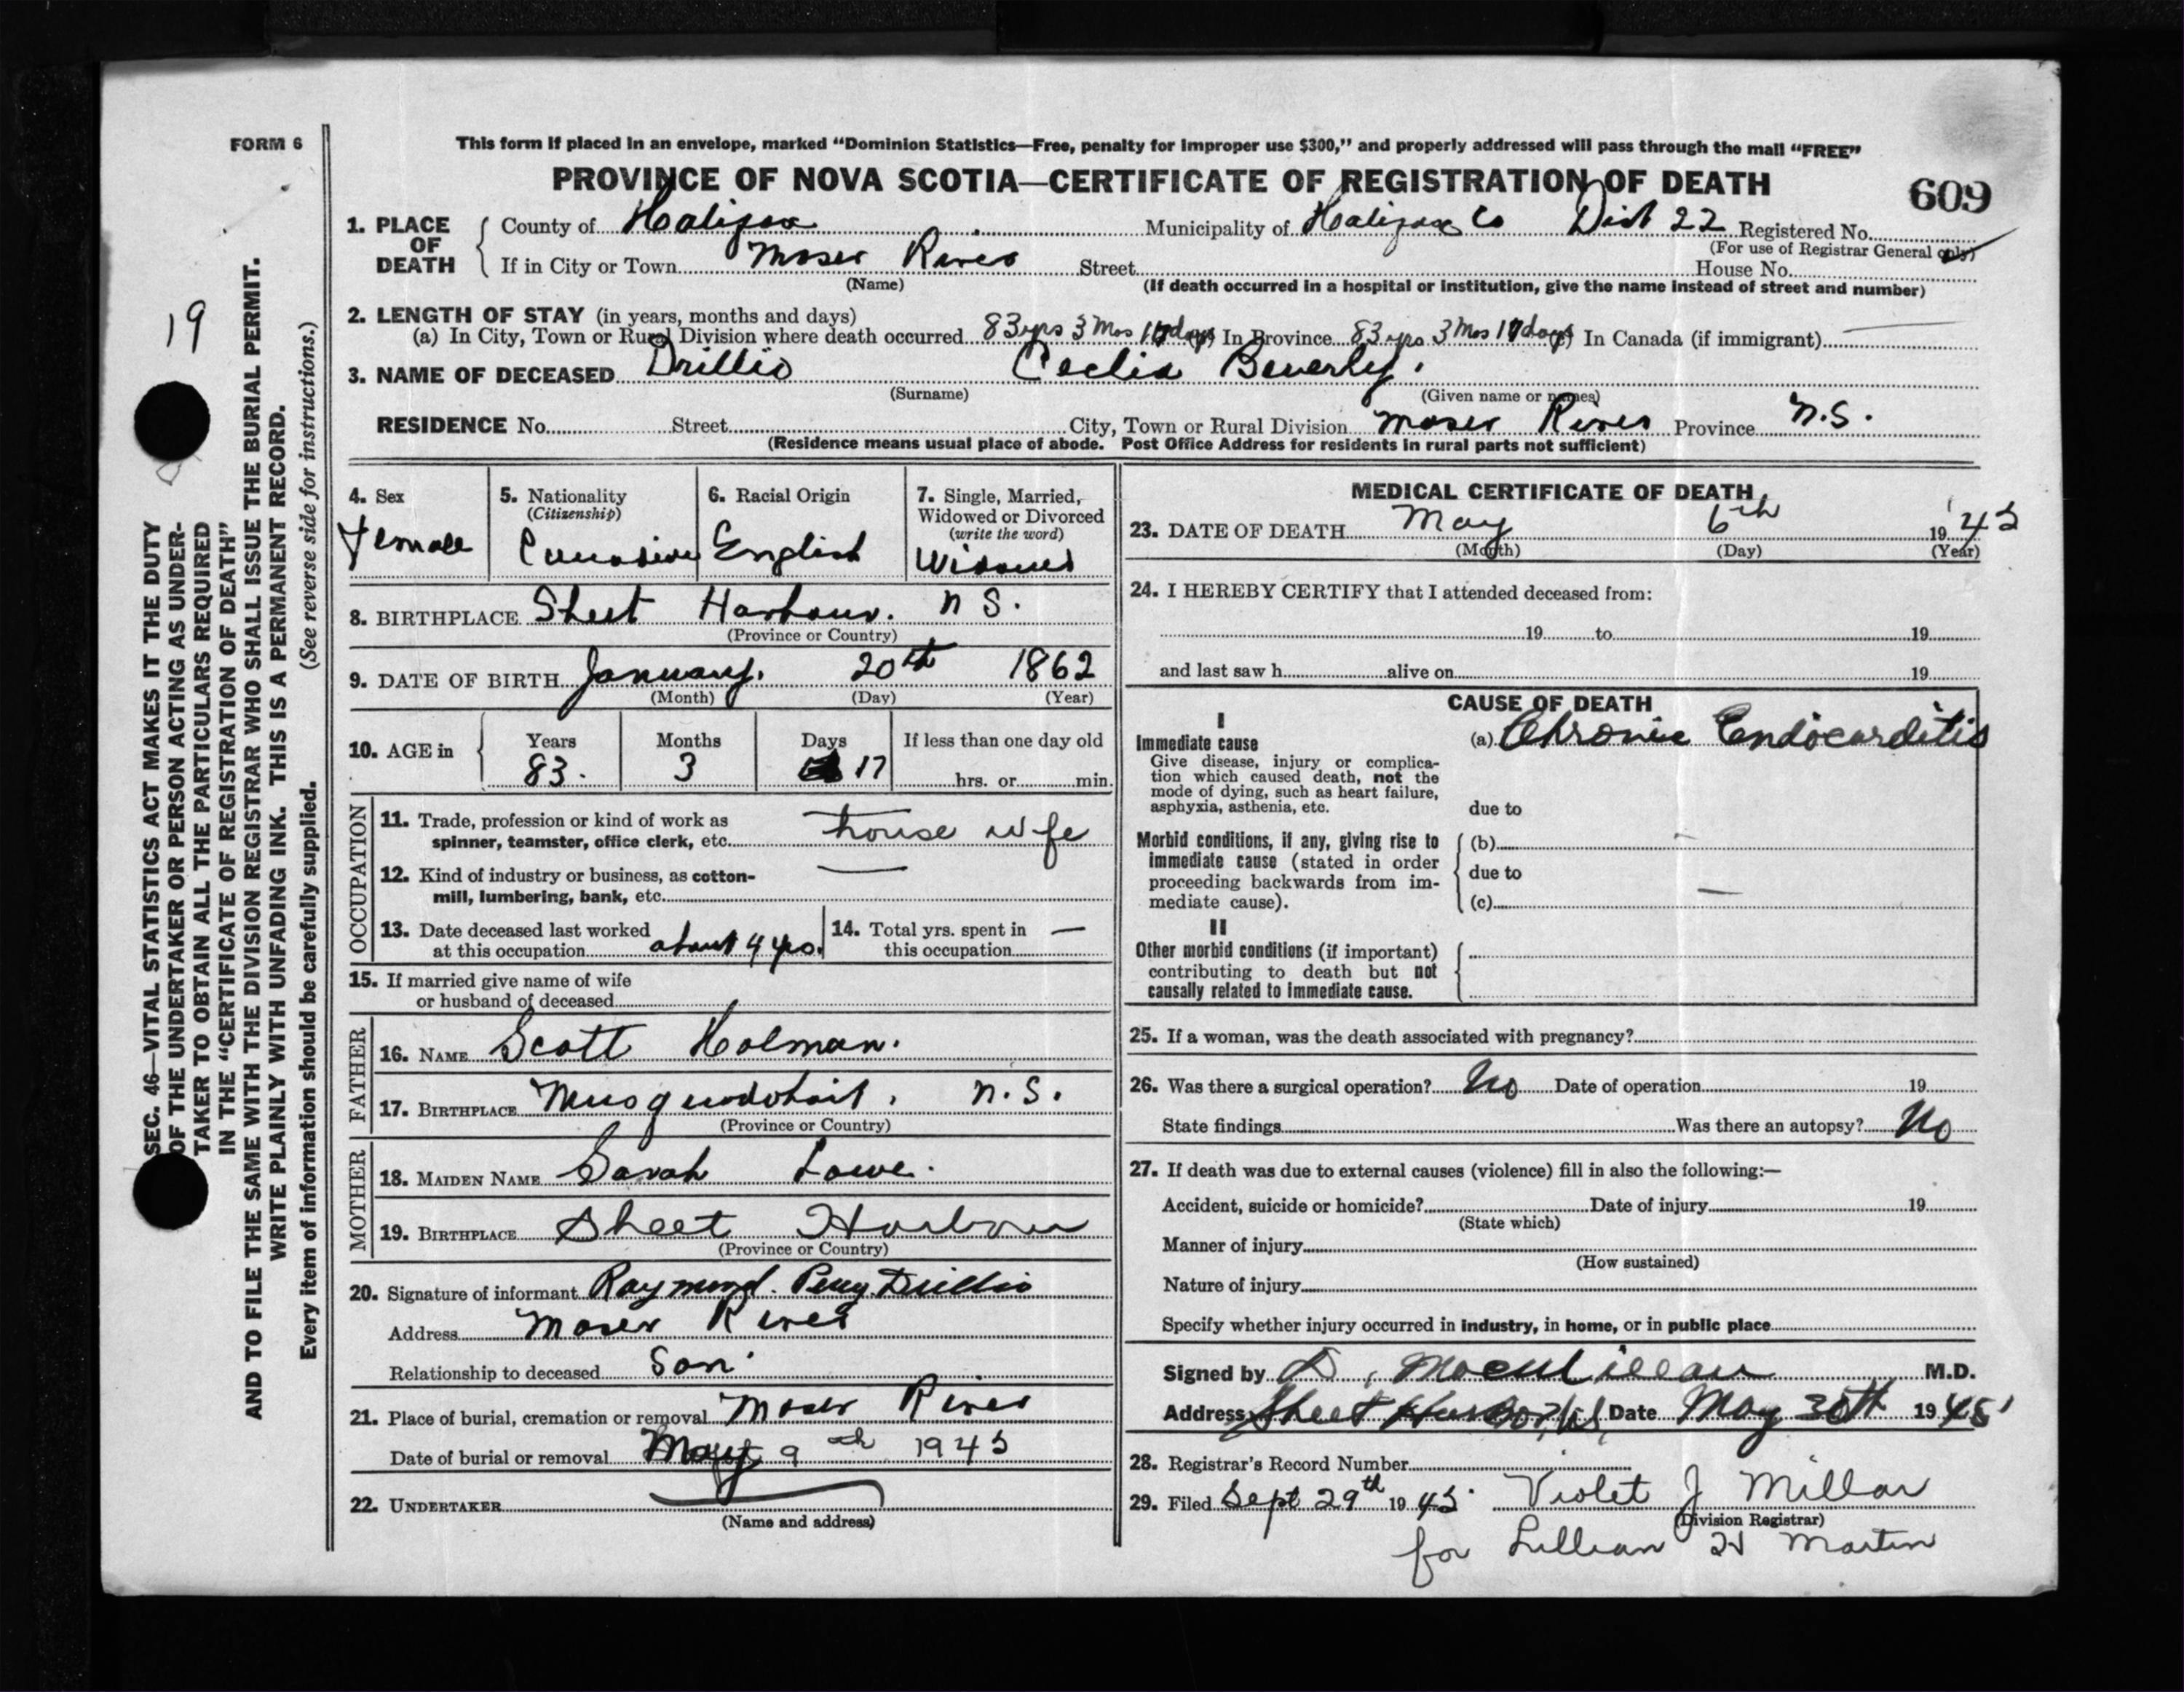 FORM 6
This form if placed in an envelope, marked “Dominion Statistics—Free, penalty for improper use $300,” and properly addressed will pass through the mail “FREE”
PROVINCE OF NOVA SCOTIA—CERTIFICATE OF REGISTRATION OF DEATH
609
1. PLACE OF DEATH County of Halifax Municipality of Halifax Co Dist 22 Registered No.
(For use of Registrar General only)
If in City or Town Moser River Street House No.
(Name) (If death occurred in a hospital or institution, give the name instead of street and number)
2. LENGTH OF STAY (in years, months and days)
(a) In City, Town or Rural Division where death occurred 83 yrs 3 Mos 17 days In Province 83 yrs 3 Mos 17 days In Canada (if immigrant)
3. NAME OF DECEASED Drillio Ceclia Beverly.
(Surname) (Given name or names)
RESIDENCE No. Street City, Town or Rural Division Moser River Province N.S.
(Residence means usual place of abode. Post Office Address for residents in rural parts not sufficient)
19
SEC. 46—VITAL STATISTICS ACT MAKES IT THE DUTY
OF THE UNDERTAKER OR PERSON ACTING AS UNDER-
TAKER TO OBTAIN ALL THE PARTICULARS REQUIRED
IN THE “CERTIFICATE OF REGISTRATION OF DEATH”
AND TO FILE THE SAME WITH THE DIVISION REGISTRAR WHO SHALL ISSUE THE BURIAL PERMIT.
WRITE PLAINLY WITH UNFADING INK. THIS IS A PERMANENT RECORD.
Every item of information should be carefully supplied. (See reverse side for instructions.)
4. Sex
Female
5. Nationality
(Citizenship)
Canadian
6. Racial Origin
English
7. Single, Married,
Widowed or Divorced
(write the word)
Widowed
8. BIRTHPLACE Sheet Harbour. N S.
(Province or Country)
9. DATE OF BIRTH January. 20th 1862
(Month) (Day) (Year)
10. AGE in Years Months Days If less than one day old
83. 3 17 hrs. or min.
OCCUPATION
11. Trade, profession or kind of work as
spinner, teamster, office clerk, etc. house wife
12. Kind of industry or business, as cotton-
mill, lumbering, bank, etc.
13. Date deceased last worked
at this occupation about 4 yrs.
14. Total yrs. spent in —
this occupation
15. If married give name of wife
or husband of deceased
FATHER
16. NAME Scott Holman.
17. BIRTHPLACE Musquodoboit, N.S.
(Province or Country)
MOTHER
18. MAIDEN NAME Sarah Lowe.
19. BIRTHPLACE Sheet Harbour
(Province or Country)
20. Signature of informant Raymond. Percy Drillio
Address Moser River
Relationship to deceased Son
21. Place of burial, cremation or removal Moser River
Date of burial or removal May 9th 1945
22. UNDERTAKER
(Name and address)
MEDICAL CERTIFICATE OF DEATH
23. DATE OF DEATH May 6th 1945
(Month) (Day) (Year)
24. I HEREBY CERTIFY that I attended deceased from:
19 to 19
and last saw h alive on 19
CAUSE OF DEATH
I
Immediate cause (a) Chronic Endocarditis
Give disease, injury or complica-
tion which caused death, not the
mode of dying, such as heart failure,
asphyxia, asthenia, etc. due to
Morbid conditions, if any, giving rise to (b) —
immediate cause (stated in order
proceeding backwards from im- due to
mediate cause). (c) —
II
Other morbid conditions (if important)
contributing to death but not
causally related to immediate cause.
25. If a woman, was the death associated with pregnancy?
26. Was there a surgical operation? No Date of operation 19
State findings Was there an autopsy? No
27. If death was due to external causes (violence) fill in also the following:—
Accident, suicide or homicide? Date of injury 19
(State which)
Manner of injury
(How sustained)
Nature of injury
Specify whether injury occurred in industry, in home, or in public place
Signed by D. MacMillan M.D.
Address Sheet Harbor, N.S, Date May 30th 1945
28. Registrar's Record Number
29. Filed Sept 29th 1945. Violet J Millar
(Division Registrar)
for Lillian H Martin